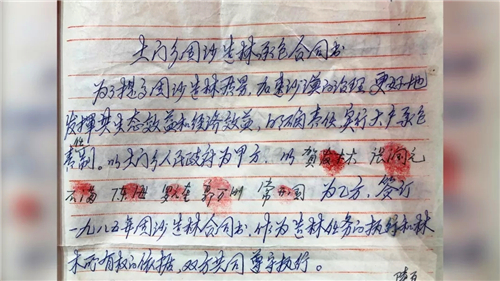 土门乡固沙造林承包合同书
为了提高固沙造林质量,加速沙漠的治理,更好地
发挥其生态效益和经济效益,以明确责任实行大户承包
责任制。以土门乡人民政府为甲方,以贺发林 张润元
满 陈海 罗 奎 郭万刚 常开国 为乙方,签订
一九八五年固沙造林合同书,作为造林任务的执行和林
木所有权的依据,双方共同遵守执行。